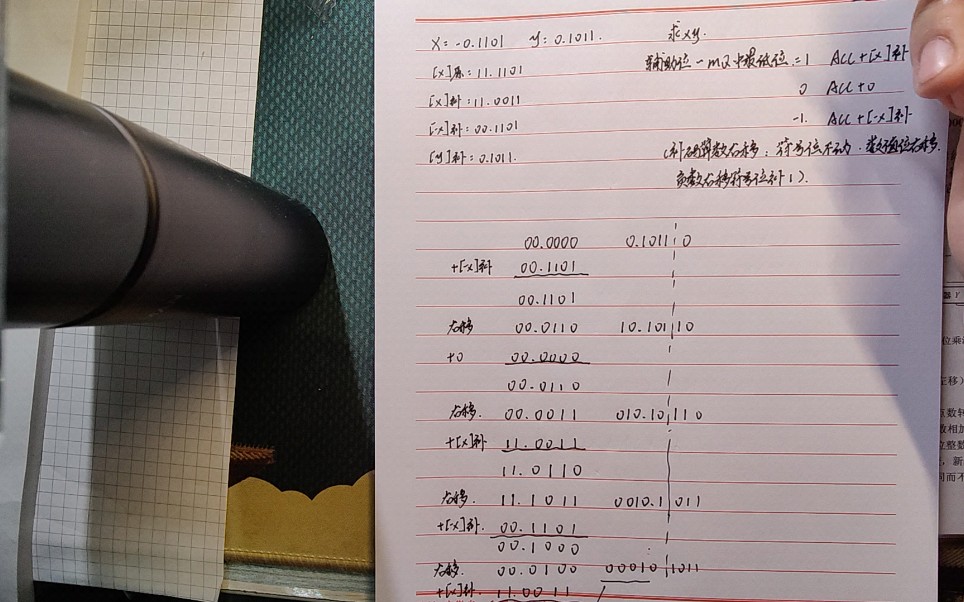 x = -0.1101 y = 0.1011. 求xy.
[x]原: 11.1101 辅助位 - MQ中最低位 = 1 ACC+[x]补
[x]补: 11.0011 0 ACC+0
[-x]补: 00.1101 -1. ACC+[-x]补
[y]补: 0.1011. (补码算数右移: 符号位不动. 数值位右移.
负数右移符号位补1).
00.0000 0.1011 0
+[-x]补 00.1101
00.1101
右移 00.0110 10.101 10
+0 00.0000
00.0110
右移. 00.0011 010.10 110
+[x]补 11.0011
11.0110
右移. 11.1011 0010.1 011
+[-x]补. 00.1101
00.1000
右移. 00.0100 00010 1011
+[x]补 11.0011
位乘
左移)
点数转
数相加
位整数
, 新
同而不